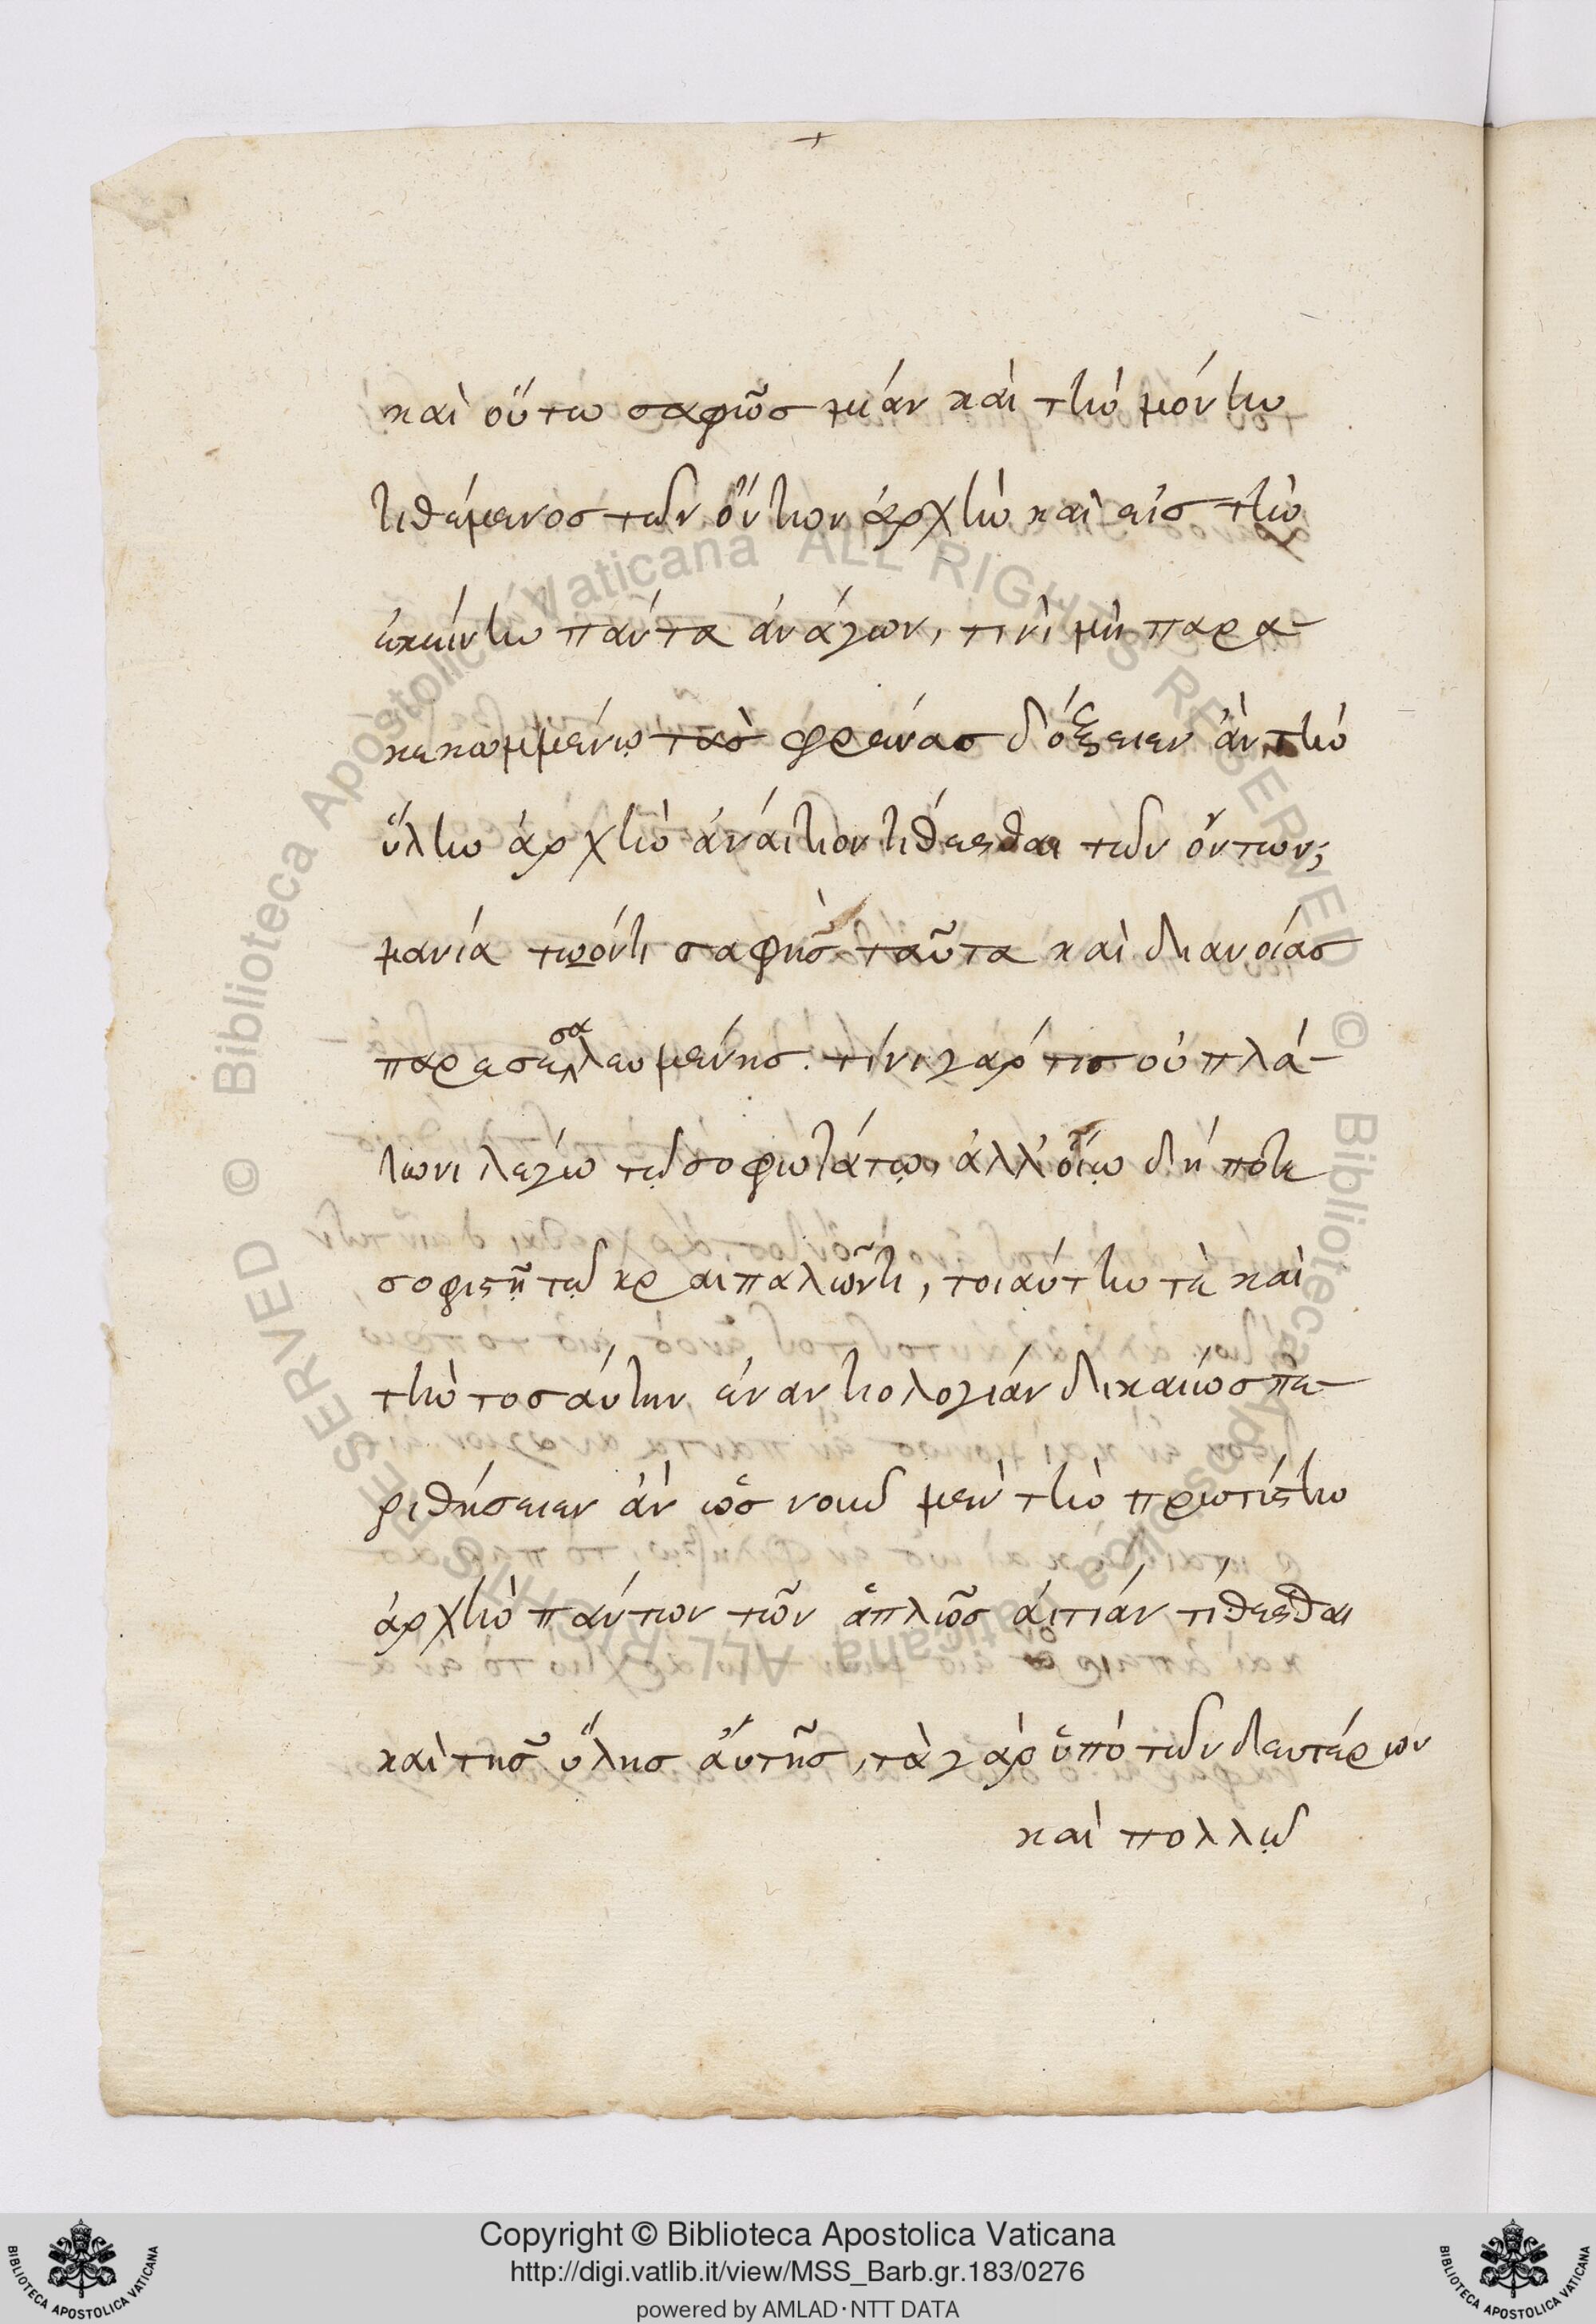 καὶ οὕτω σαφῶς μίαν καὶ τὴν μόνην
τιθέμενος τῶν ὄντων ἀρχὴν καὶ εἰς τὴν
ἐκείνην πάντα ἀνάγων, τινὶ μὴ παρα-
κεκομμένῳ τὰς φρένας δόξειεν ἂν τὴν
ὕλην ἀρχὴν ἀναίτιον τίθεσθαι τῶν ὄντων;
μανία τωόντι σαφὴς ταῦτα καὶ διανοίας
παρεσεσαλευμένης. τίνι γάρ τις οὐ πλά-
τωνι λέγω τῷ σοφωτάτῳ, ἀλλ' οἵῳ δήποτε
σοφιστῇ τῷ κραιπαλῶντι, τοιαύτην τε καὶ
τὴν τοσαύτην ἐναντιολογίαν δικαίως πε-
ριθήσειεν ἂν ὡς νοῦν μὲν τὴν πρωτίστην
ἀρχὴν πάντων τῶν ἁπλῶς αἰτίαν τίθεσθαι
καὶ τῆς ὕλης αὐτῆς, τὰ γὰρ ὑπὸ τῶν δευτέρων
καὶ πολλῷ
Copyright © Biblioteca Apostolica Vaticana
http://digi.vatlib.it/view/MSS_Barb.gr.183/0276
powered by AMLAD·NTT DATA
BIBLIOTECA APOSTOLICA VATICANA
BIBLIOTECA APOSTOLICA VATICANA
© Biblioteca Apostolica Vaticana ALL RIGHTS RESERVED
© Biblioteca Apostolica Vaticana ALL RIGHTS RESERVED